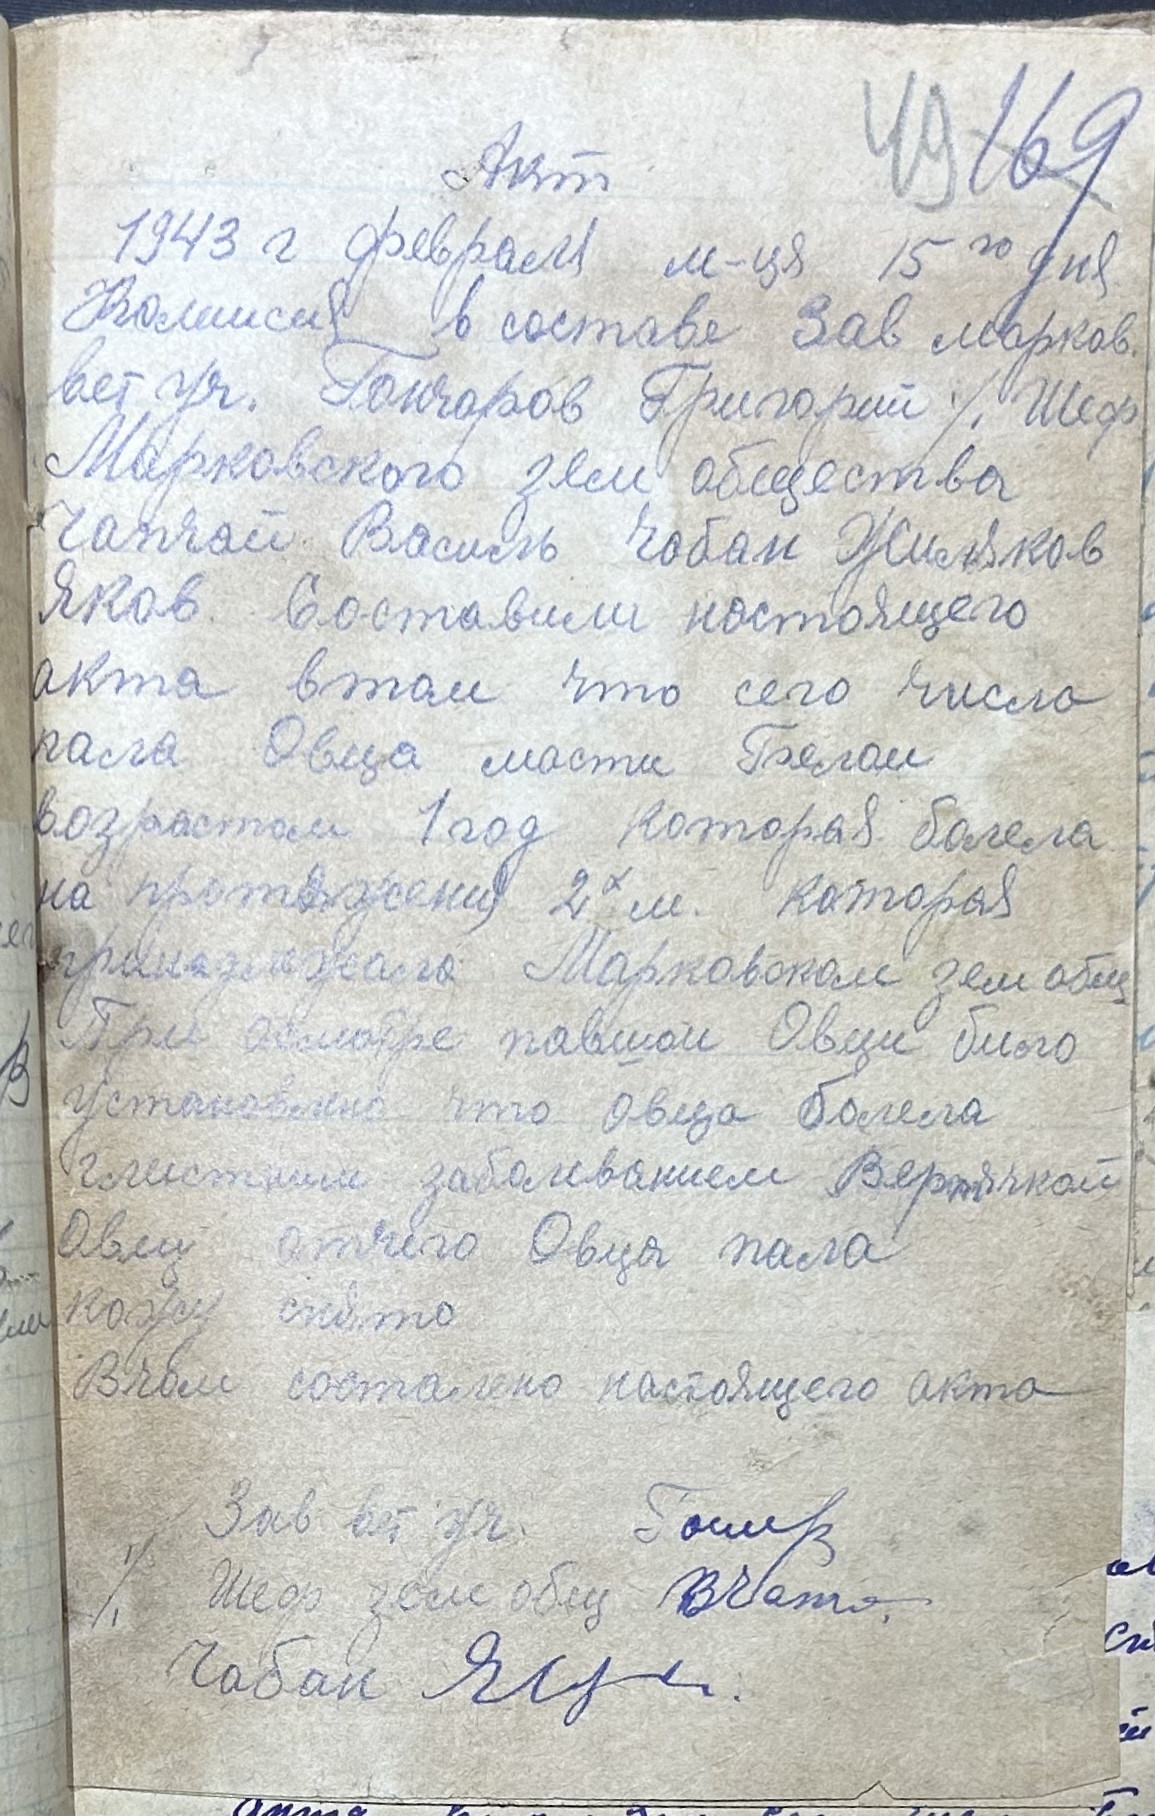 49 169
Акт
1943 г февраля м-ця 15го дня
Комиссия в составе Зав марков.
вет уч. Гончаров Григорий ·/. Шеф
Марковского зем общества
Чапчай Василь чабан Жиляков
Яков. Составили настоящего
акта втом что сего числа
пала Овца масти Белои
возростом 1 год которая болела
на протяжении 2х м. которая
принадлежала Марковском зем общ
При осмотре павшои Овци било
установлено что овца болела
глистним заболиванием Вертячкой
Овец отчего Овца пала
кожу снято
Вчом состалено настоящего акта
Зав вет уч.
·/. Шеф зем общ
Чабан